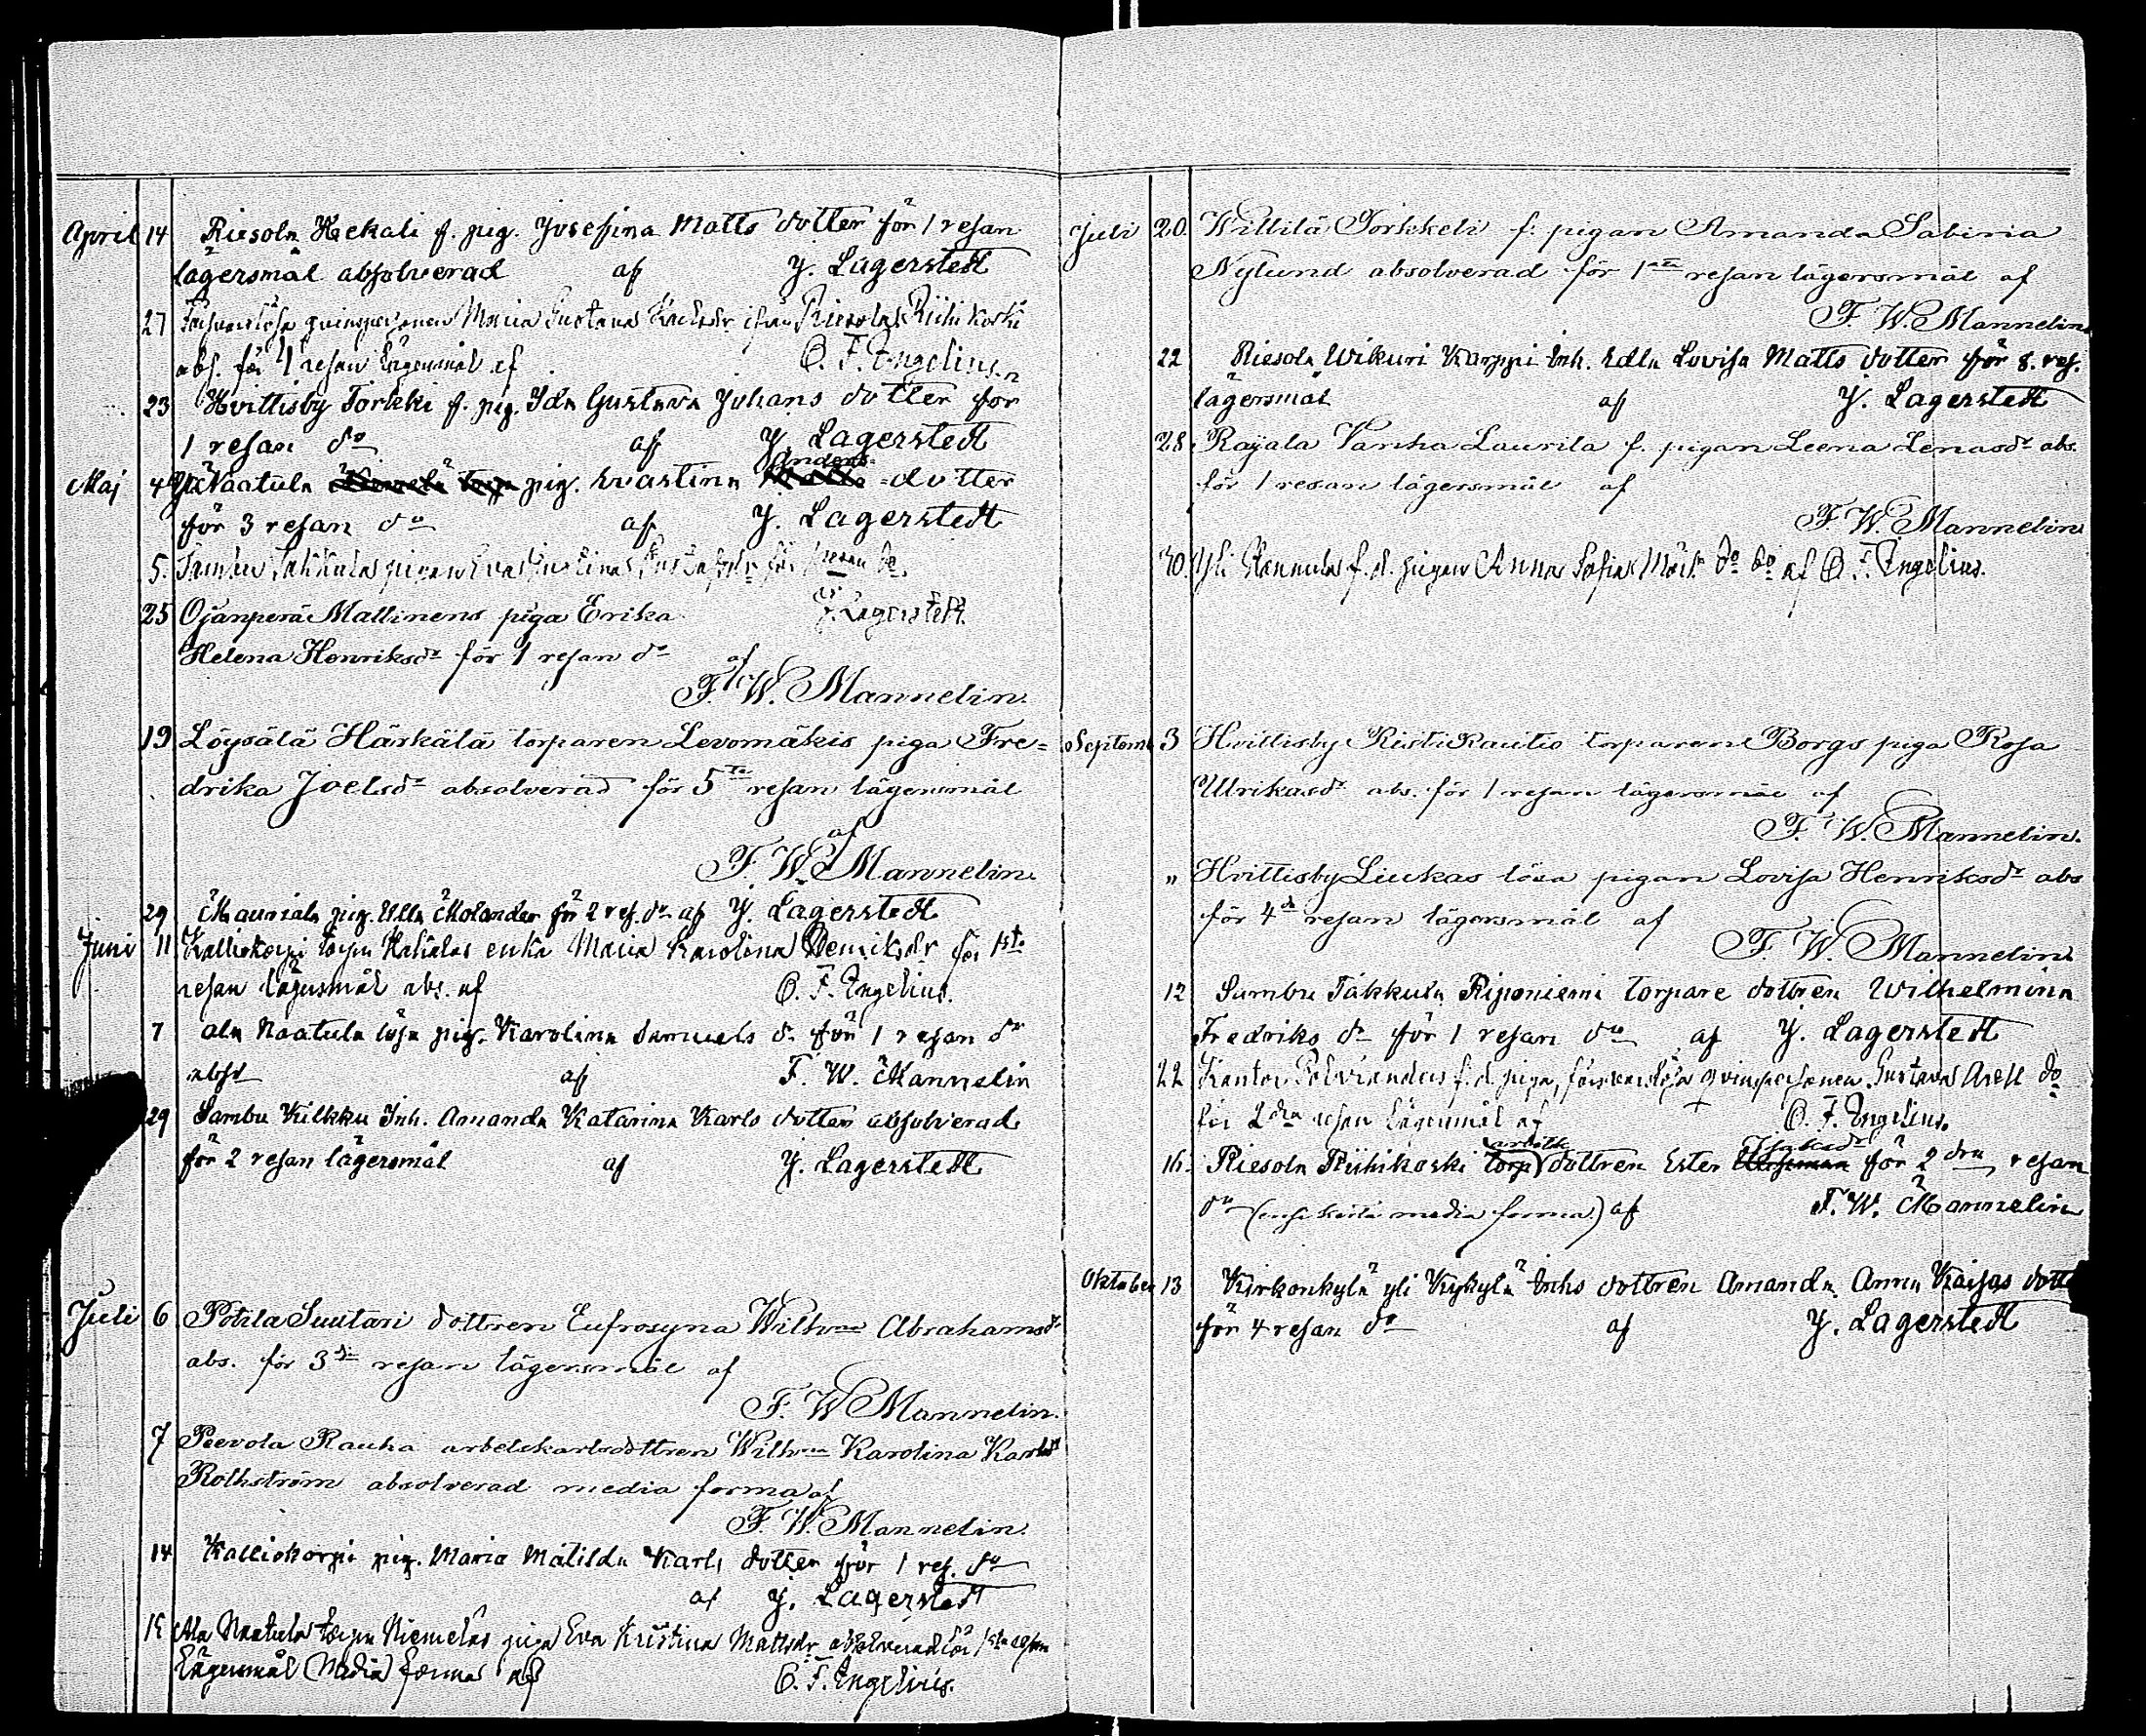 April 14 Riesola Kekali f. pig. Josefina Matts dotter för 1 resan
lägersmål absolverad af J. Lagerstedt
27 Försvarslösa qvinspersonen Maria Gustava ifrån Riesola Riihikoski
abs. för 4 resan lägersmål af O. F. Engelius.
23 Hvittisby Torkki f. pig. Ida Gustava Johans dotter för
1 resan do af J. Lagerstedt
Maj 4 Naatula pig. Evastina Anders-dotter
för 3 resan do af J. Lagerstedt
5. Sambu Takkulas pigan Eva Justina Gustafsdr för 1 resan do
J. Lagerstedt.
25 Ojanperä Mattinens piga Erika
Helena Henriksdr för 1 resan do af
F. W. Mannelin.
19 Löysälä Härkälä torparen Levomäkis piga Fre=
drika Joelsdr absolverad för 5te resan lägersmål
af
F. W. Mannelin.
29 Mauriala pig. Ulla Molander för 2 res. do af J. Lagerstedt
Juni 11 Kalliokorpi torpn enka Maria Karolina Henriksdr för 1sta
resan lägersmål abs. af O. F. Engelius.
7 Ala Naatula lösa pig. Karolina Samuels d. för 1 resan do
absd af F. W. Mannelin
29 Sambu Kilkku Inh. Amanda Katarina Karls dotter absolverad
för 2 resan lägersmål af J. Lagerstedt
Juli 6 Potila Suutari dottren Eufrosyna Wilhna Abrahamsdr
abs. för 3dje resan lägersmål af
F. W. Mannelin.
7 Peevola Rauha arbetskarlsdottren Wilhna Karolina Karlsdr
Rothström absolverad media forma af
F. W. Mannelin.
14 Kalliokorpi pig. Maria Matilda Karls dotter för 1 res. do
af J. Lagerstedt
15 Ala Naatula torpn Niemeläs piga Eva Kristina Mattsdr absolverad för 1sta resan
lägersmål (Media) forma af O. F. Engelius.
Juli 20. Willilä Torkkeli f. pigan Amanda Sabina
Nylund absolverad för 1sta resan lägersmål af
F. W. Mannelin
22 Riesola Wikuri Karppi Inh. Edla Lovisa Matts dotter för 8. res.
lägersmål af J. Lagerstedt
28 Rajala Vanha Laurila f. pigan Leena Lenasdr abs.
för 1 resan lägersmål af
F. W. Mannelin
30. Yli Hannula f. d. pigan Anna Sofia do do af O. F. Engelius.
Septemb 3 Hvittisby Risti Rautio torparen Borgs piga Rosa
Ulrikasdr abs. för 1 resan lägersmål af
F. W. Mannelin.
" Hvittisby Liukas lösa pigan Lovisa Henriksdr abs
för 4de resan lägersmål af
F. W. Mannelin
12 Sambu Takkula Riponiemi torpare dottren Wilhelmina
Fredriks dr för 1 resan do af J. Lagerstedt
22 Kantor Polvianders f. d. piga, försvarslösa qvinspersonen Gustava Arell do
för 2dra resan lägersmål af O. F. Engelius.
16. Riesola Riihikoski arbetk dottren Ester Isaksdr för 2dra resan
do (enskilta media forma) af F. W. Mannelin
Oktober 13 Kirkonkylä yli Kykylä Inhs dottren Amanda Anna Kaisas dott
för 4 resan do af J. Lagerstedt